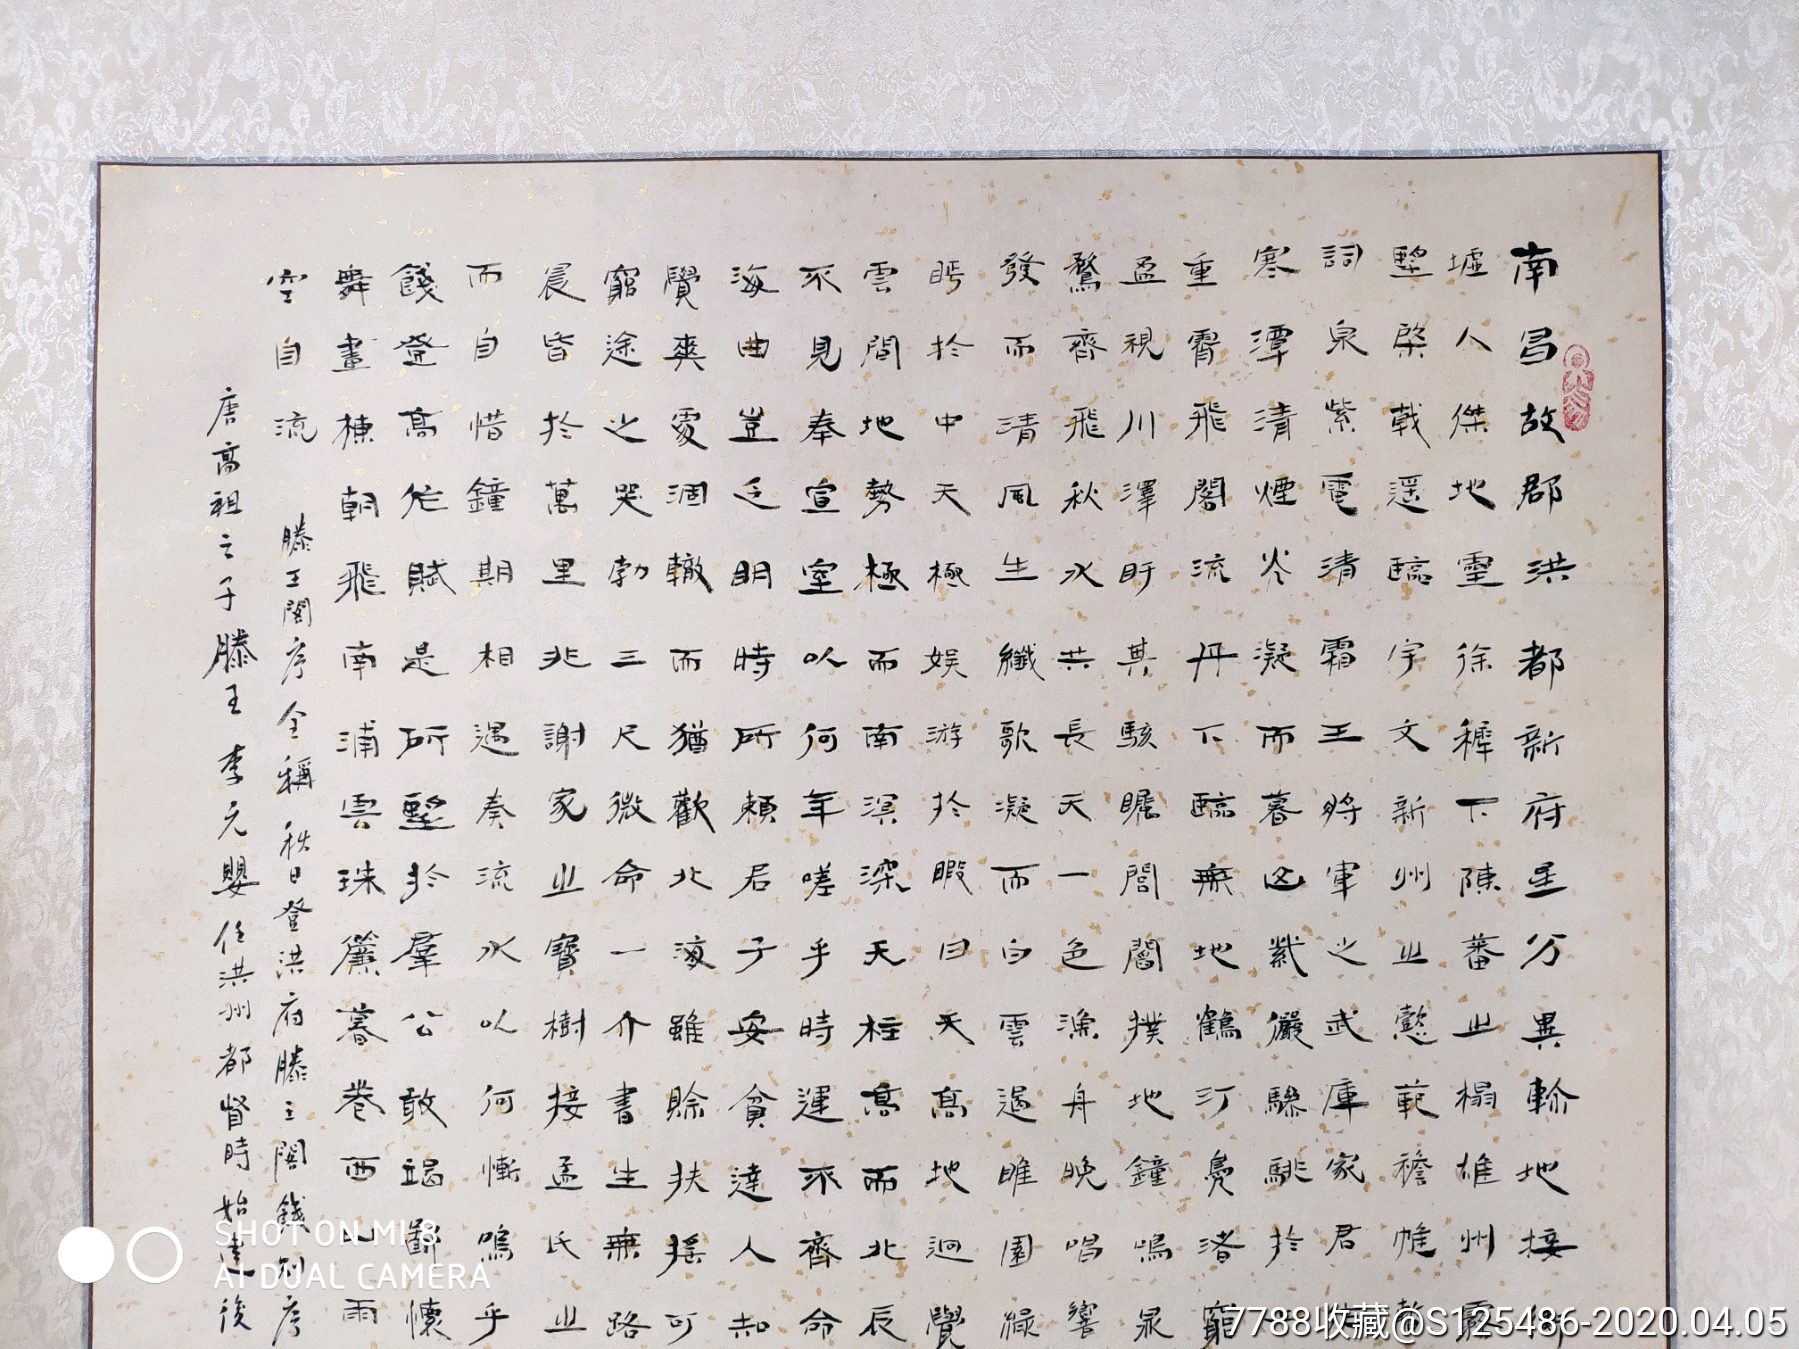 南昌故郡洪都新府星分異軫地接衡
墟人傑地靈徐穉下陳蕃之榻雄州霧
望棨戟遥臨宇文新州之懿範襜帷暫
詞宗紫電清霜王將軍之武庫家君
寒潭清煙光凝而暮山紫儼驂騑於
重霄飛閣流丹下臨無地鶴汀鳧渚窮
盈視川澤盱其駭矚閭閻撲地鐘鳴鼎
鶩齊飛秋水共長天一色漁舟晚唱響
發而清風生纖歌凝而白雲遏睢園綠
眄於中天極娱游於暇日天高地迥覺
雲間地勢極而南溟深天柱高而北辰
不見奉宣室以何年嗟乎時運不齊命
海曲豈乏明時所賴君子安貧達人知
覺爽處涸轍而猶歡北海雖賒扶摇可
窮途之哭勃三尺微命一介書生無路
晨昏於萬里非謝家之寶樹接孟氏之
而自惜鐘期相遇奏流水以何慚嗚乎
餞登高作賦是所望於羣公敢竭鄙懷
舞畫棟朝飛南浦雲珠簾暮卷西山雨
空自流
滕王閣序全稱秋日登洪府滕王閣餞別序
唐高祖之子滕王李元嬰任洪州都督時始建後
SHOT ON MI 8
AI DUAL CAMERA
7788收藏@S125486-2020.04.05